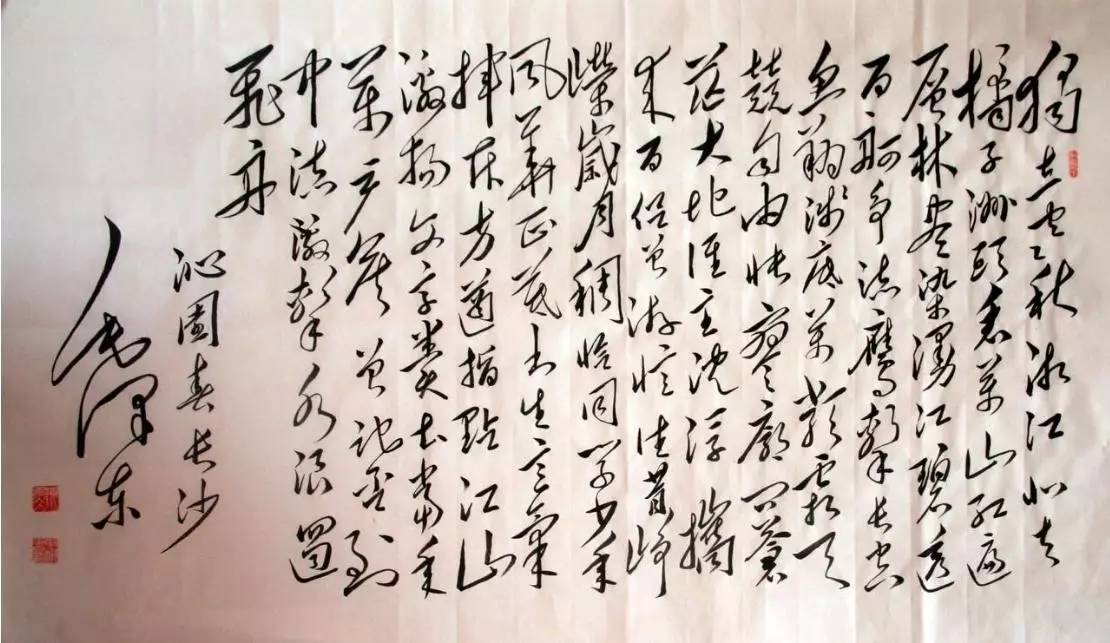 獨立寒秋湘江北去
橘子洲頭看萬山紅遍
層林盡染漫江碧透
百舸爭流鷹擊長空
魚翔淺底萬類霜天
競自由悵寥廓問蒼
茫大地誰主沈浮攜
來百侶曾游憶往昔崢
嶸歲月稠恰同學少年
風華正茂書生意氣
揮斥方遒指點江山
激揚文字糞土當年
萬户侯曾記否到
中流激擊水浪遏
飛舟
沁園春長沙
毛澤東